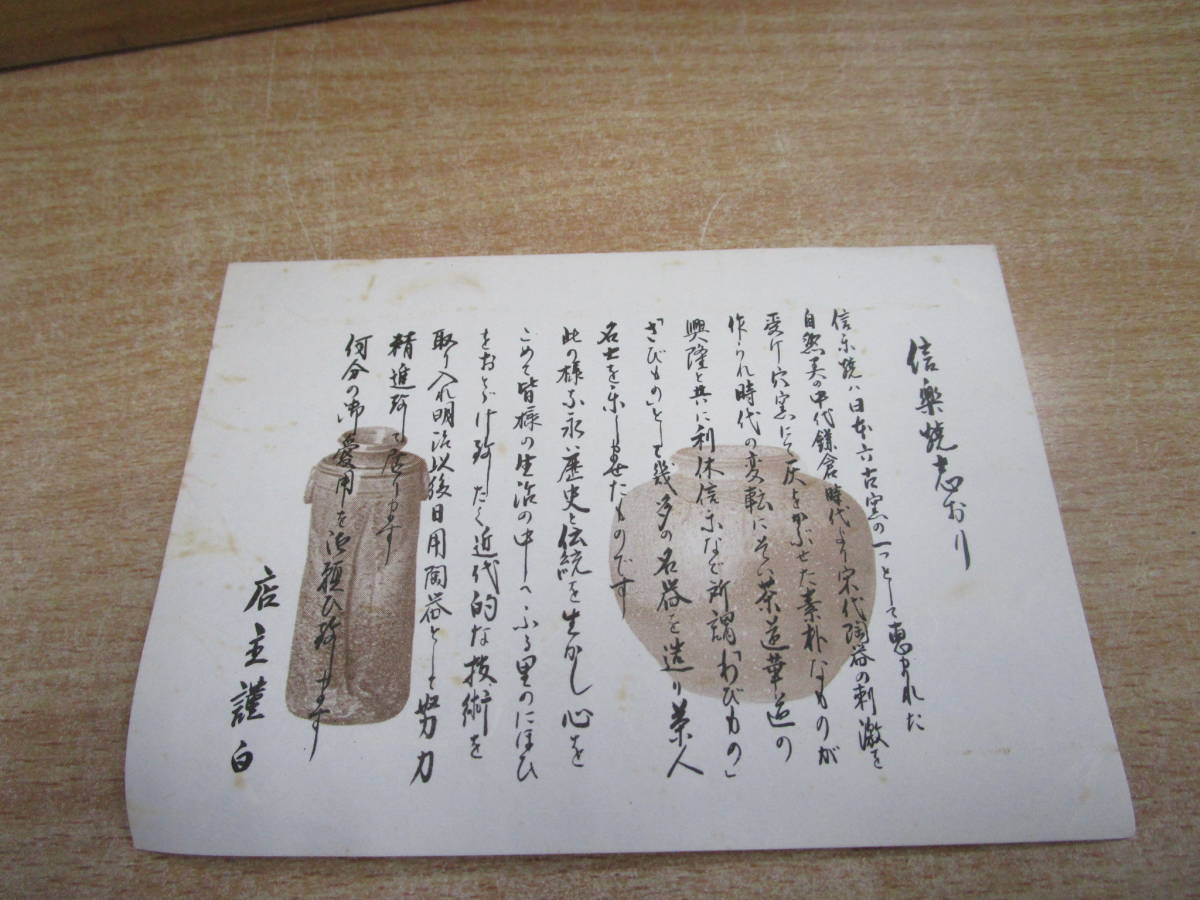 信楽焼志おり
信楽焼ハ日本六古窯の一つとして恵まれた
自然美の中代鎌倉時代より宋代陶器の刺激を
受け穴窯にて灰をかぶせた素朴なものが
作られ時代の変転にそい茶道華道の
興隆と共に利休信楽など所謂「わびもの」
「さびもの」として幾多の名器を造り茶人
名士を楽しませたものです
此の様な永い歴史と伝統を生かし心を
こめて皆様の生活の中へふる里のにほひ
をおとどけ致したく近代的な技術を
取り入れ明治以後日用陶器としと努力
精進致て居ります
何分の御愛用を御願ひ致します
店主謹白